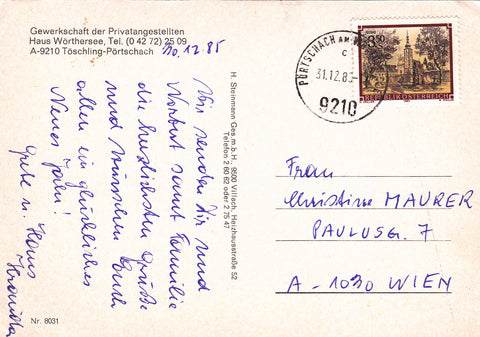 Gewerkschaft der Privatangestellten
Haus Wörthersee, Tel. (0 42 72) 25 09
A-9210 Töschling-Pörtschach
30.12.85
Wir senden Dir und
Norbert samt Familie
die herzlichsten Grüße
und wünschen Euch
allen ein glückliches
Neues Jahr!
Grete u. Hans
H. Steinmann Ges.m.b.H., 9500 Villach, Heizhausstraße 52
Telefon 2 60 62 oder 2 75 47
Nr. 8031
PÖRTSCHACH AM
c
31.12.85
9210
REPUBLIK ÖSTERREICH
Frau
Christine MAURER
PAULUSG. 7
A - 1030 WIEN